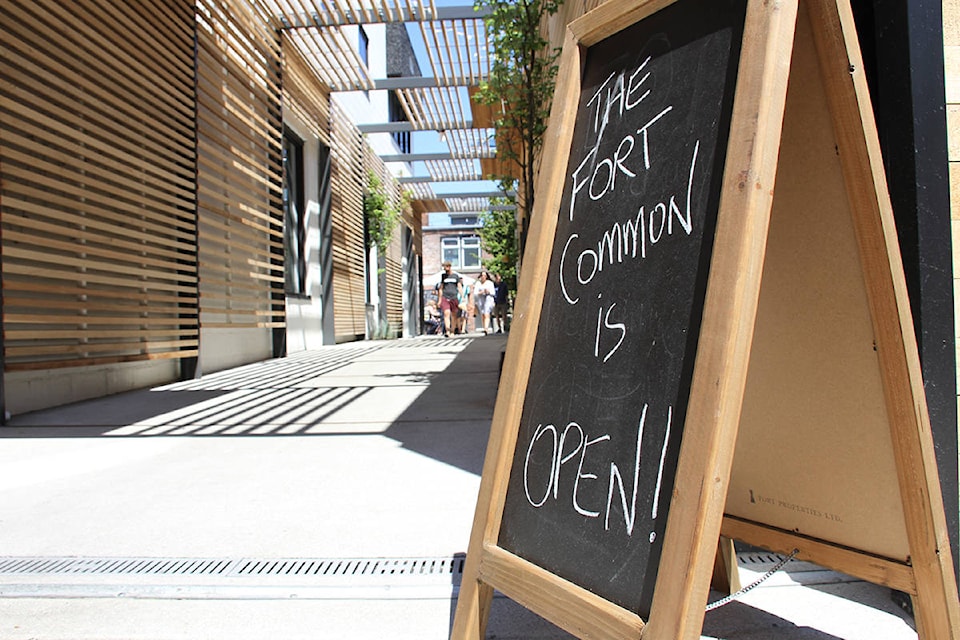 THE
FORT
COMMON
is
OPEN!
FORT PROPERTIES LTD.